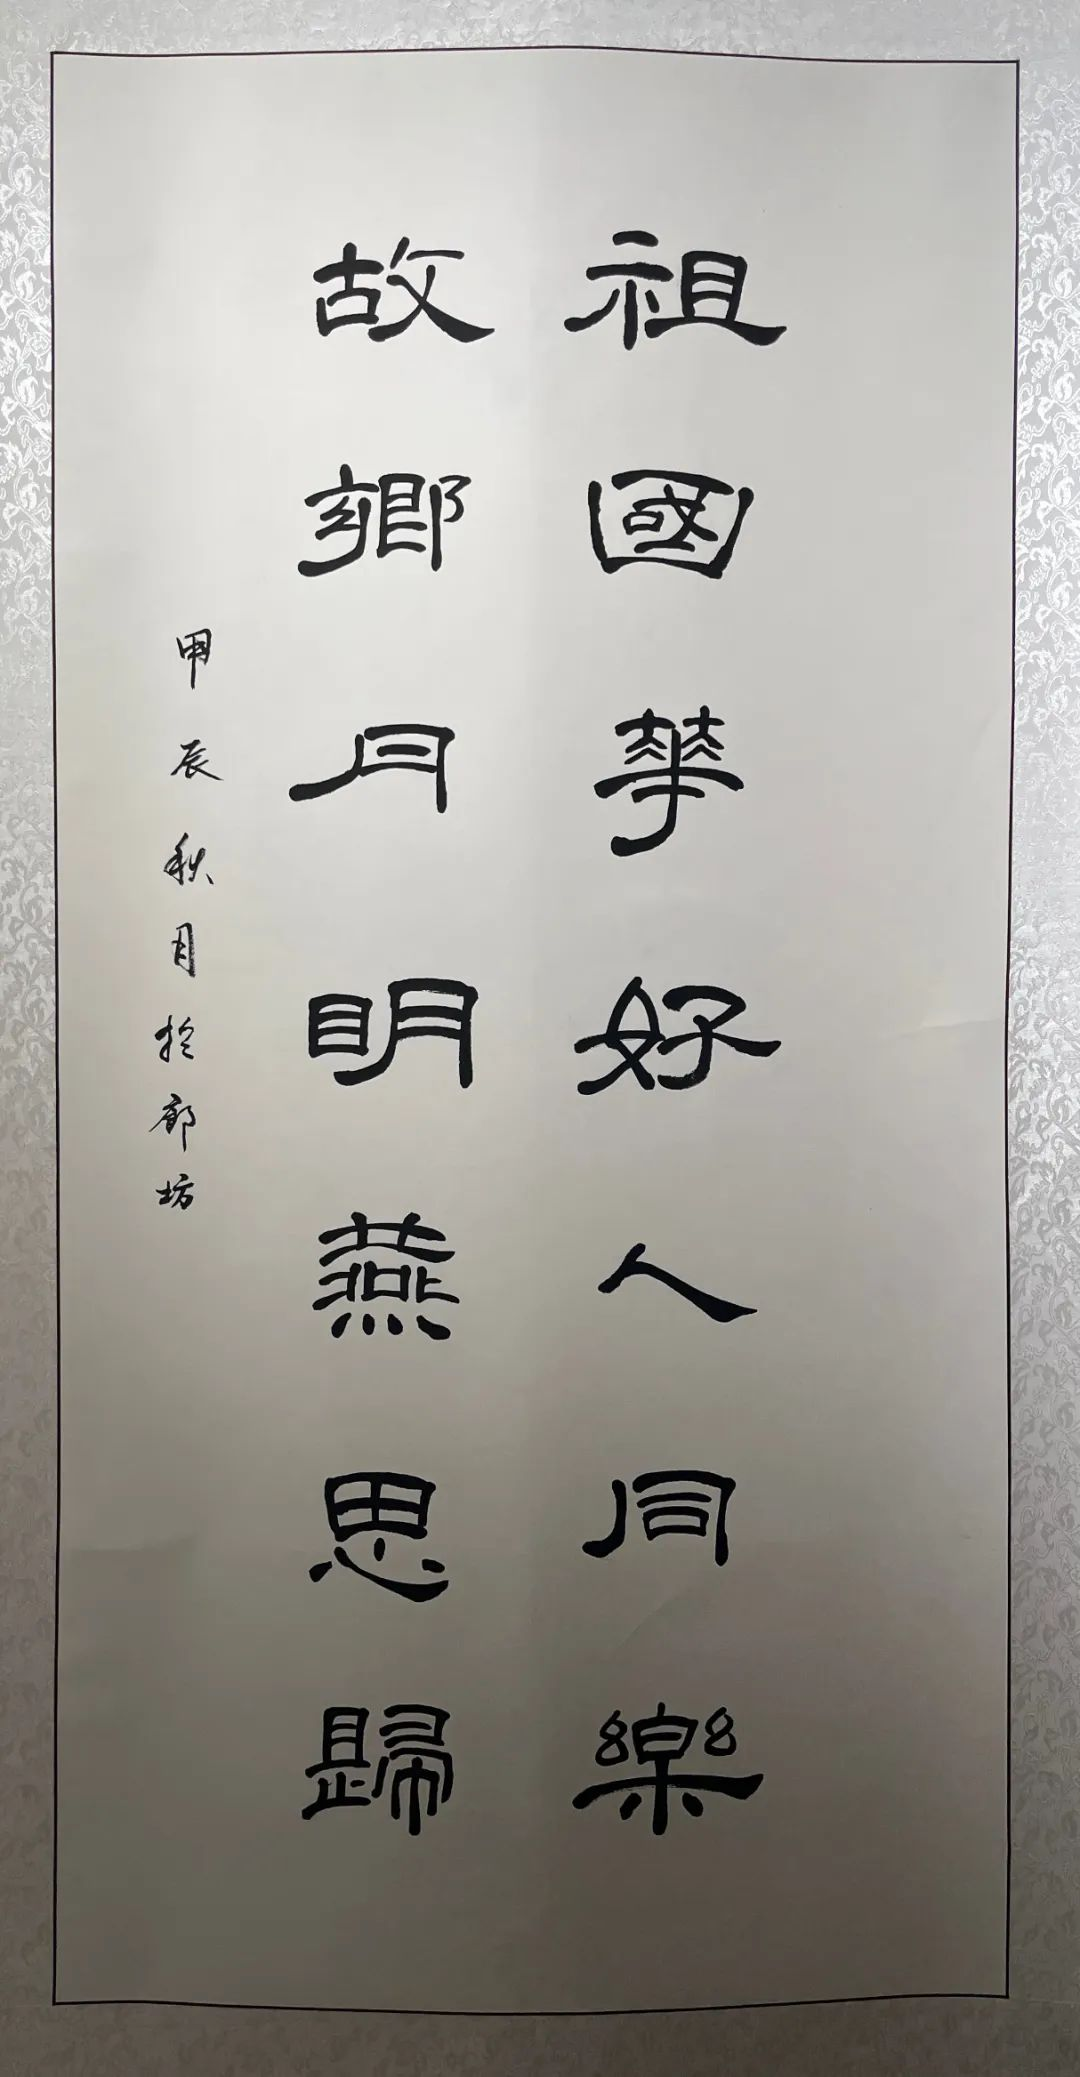 祖國華好人同樂
故鄉月明燕思歸
甲辰秋月於廊坊